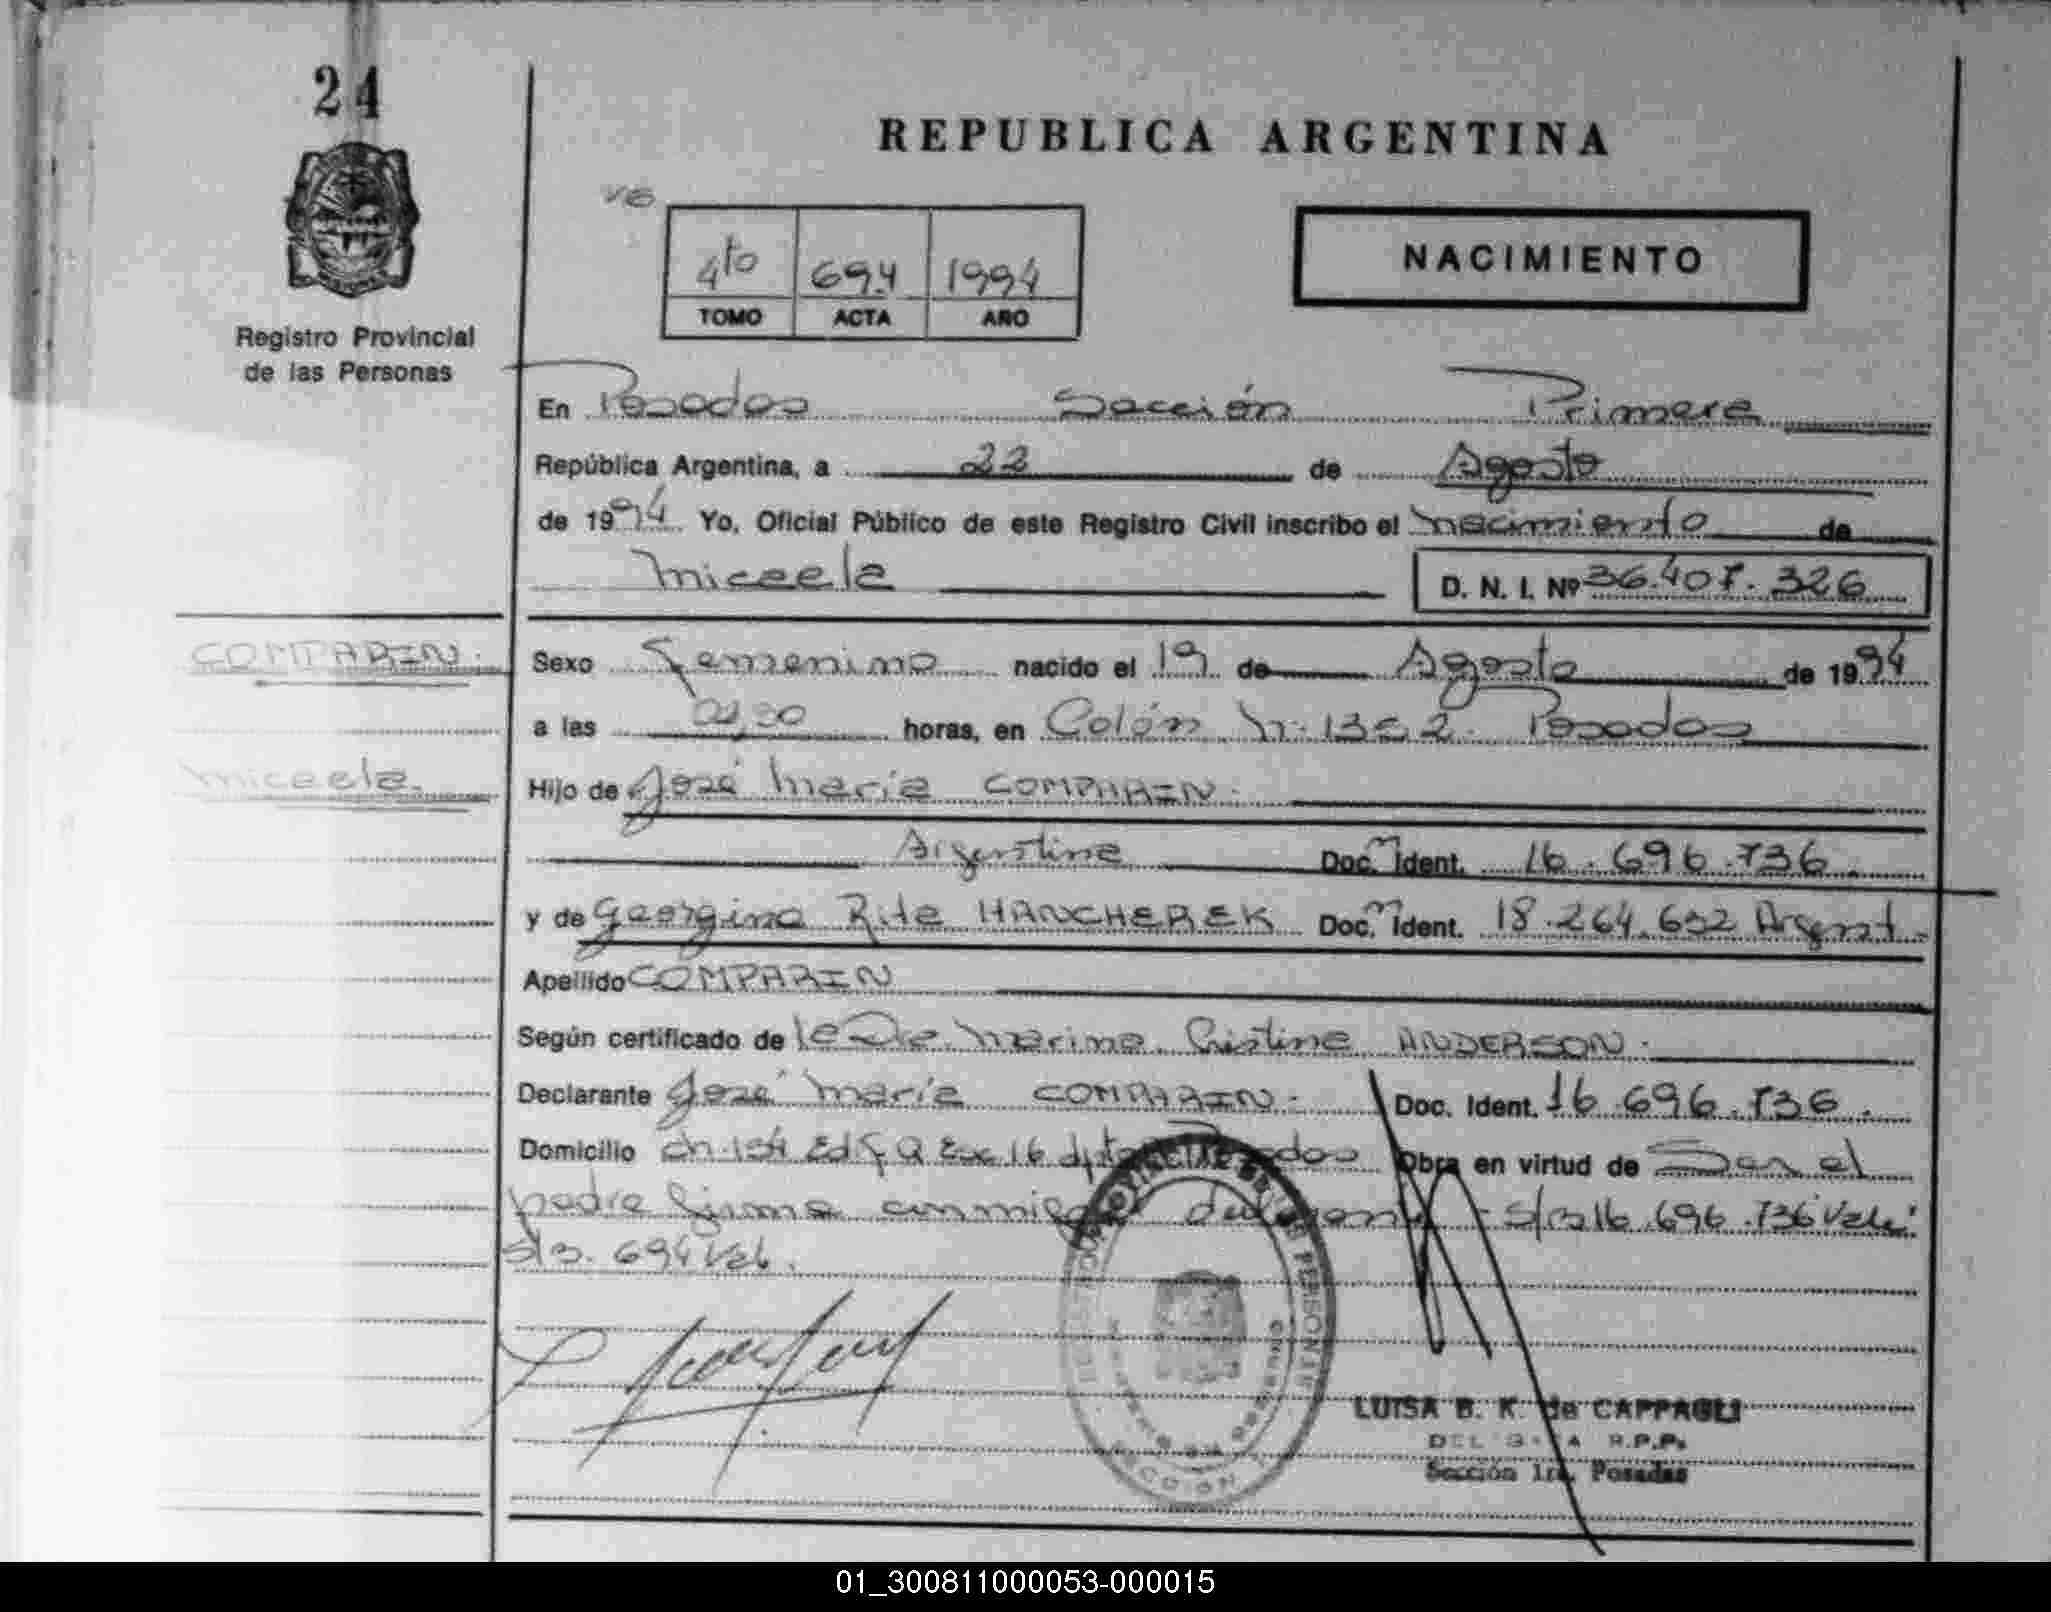 24
REPUBLICA ARGENTINA
4to 694 1994
TOMO ACTA AÑO
NACIMIENTO
Registro Provincial
de las Personas
En Posadas Sección Primera
República Argentina, a 22 de Agosto
de 1994 Yo, Oficial Público de este Registro Civil inscribo el nacimiento de
Micaela D. N. I. Nº 36.407.326
COMPARIN.
Sexo Femenino nacido el 19 de Agosto de 1994
a las horas, en Colón Nº 1352. Posadas
Micaela.
Hijo de José María COMPARIN.
Argentina Doc. m Ident. 16.696.736
y de Georgina Rita HANCHEREK Doc. m Ident. 18.264.632 Argent.
Apellido COMPARIN
Según certificado de la Dra. Marina Cristina ANDERSON.
Declarante José María COMPARIN. Doc. Ident. 16.696.736.
Domicilio Ch. 154 Edf Q Esc 16 dpto Posadas Obra en virtud de Ser el
padre firma conmigo s/r 16.696.736 Vale.
s/r. 694 Val.
LUISA B. K. de CAPPAGLI
R.P.P.
Sección 1ra. Posadas
01_300811000053-000015